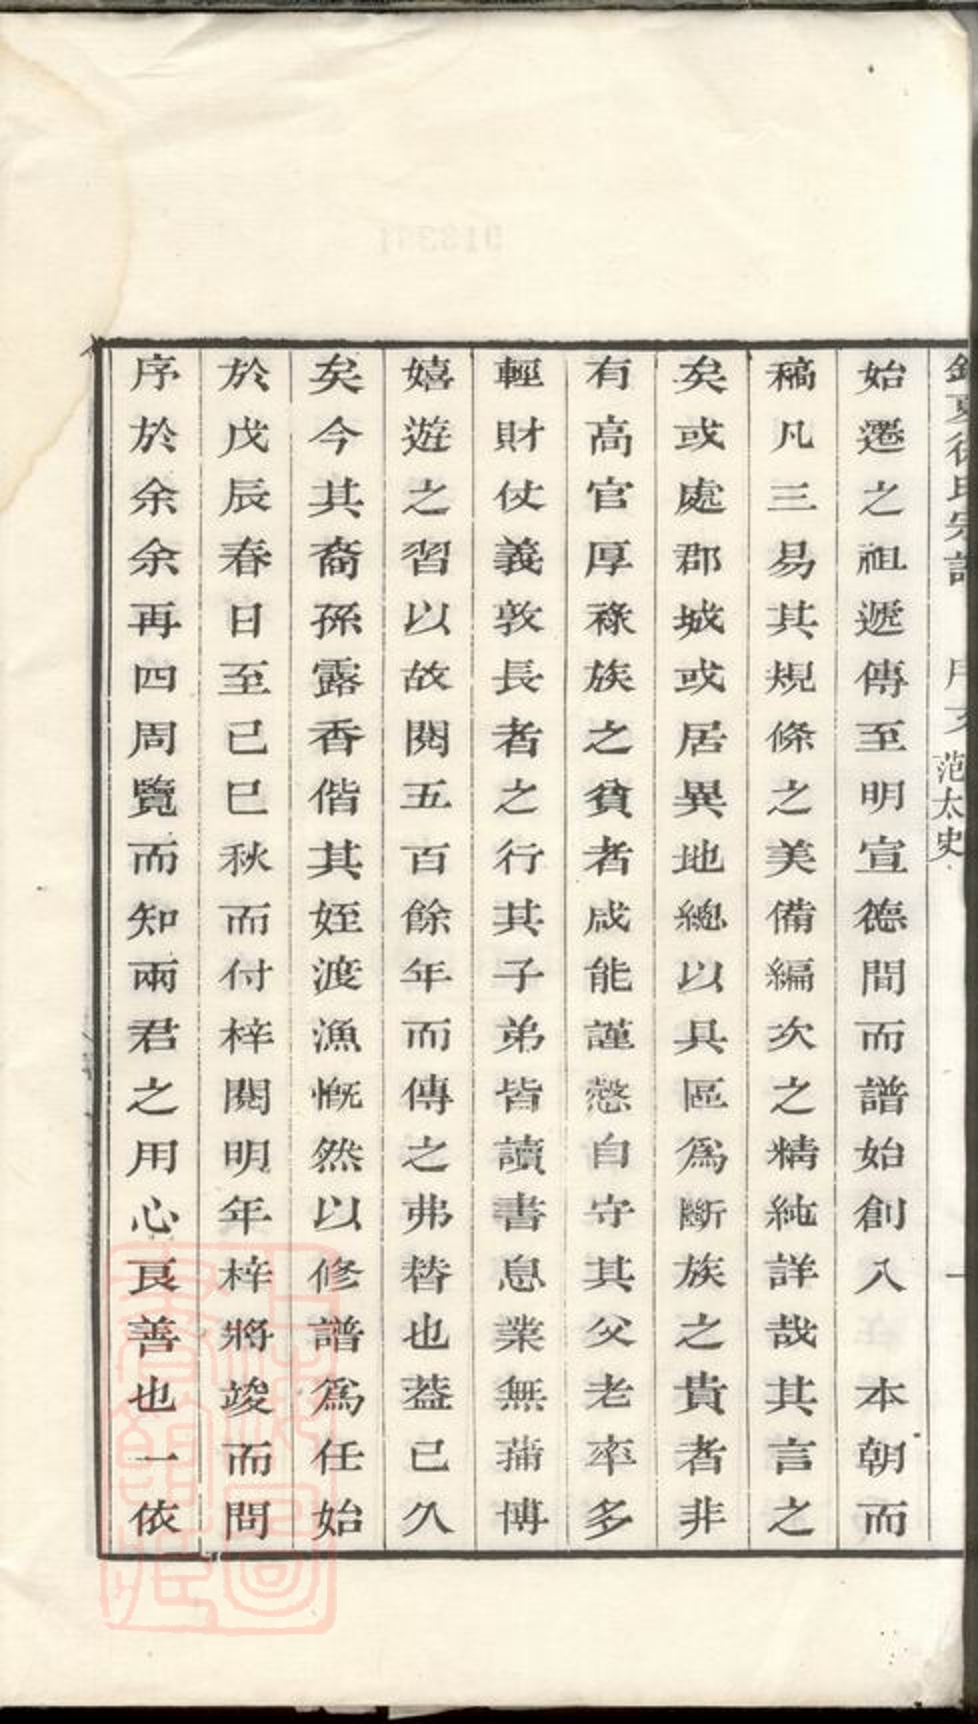 夏徐氏宗譜 序文 范太史 一
始遷之祖遞傳至明宣德間而譜始創入 本朝而
稿凡三易其規條之美備編次之精純詳哉其言之
矣或處郡城或居異地總以具區爲斷族之貴者非
有高官厚祿族之貧者咸能謹愨自守其父老率多
輕財仗義敦長者之行其子弟皆讀書息業無蒱博
嬉遊之習以故閱五百餘年而傳之弗替也葢已久
矣今其裔孫露香偕其姪渡漁慨然以修譜爲任始
於戊辰春日至己巳秋而付梓閱明年梓將竣而問
序於余余再四周覽而知兩君之用心良善也一依